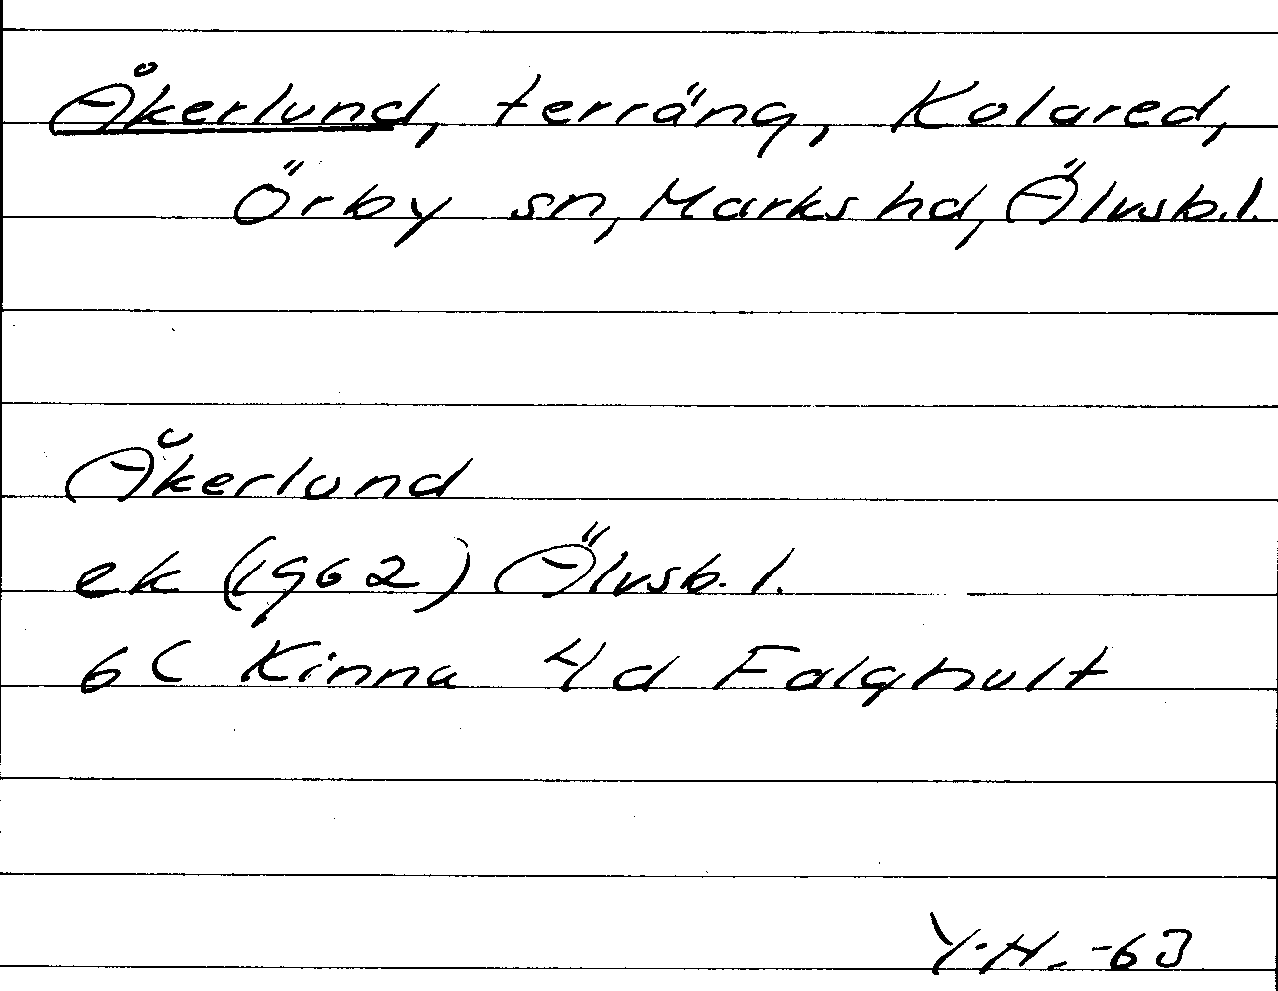 Åkerlund, terräng, Kolared,
Örby sn, Marks hd, Älvsb.l.
Åkerlund
ek (1962) Älvsb.l.
6C Kinna 4d Falghult
Y.H. -63